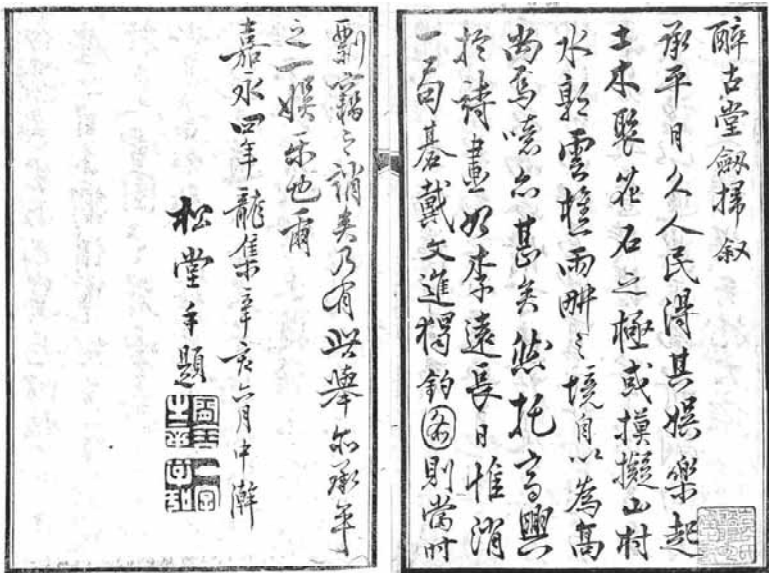 醉古堂劔掃叙
承平日久人民得其娯樂起
土木聚花石之極或摸擬山村
水郭雲樵雨畊之境自以為高
尚焉噫亦甚矣然托高興
於詩畫如李遠長日惟消
一局碁戴文進獨釣 則當时
剽竊之誚矣乃有此舉亦承平
之一娯乐也爾
嘉永四年龍集辛亥六月中澣
松堂手題